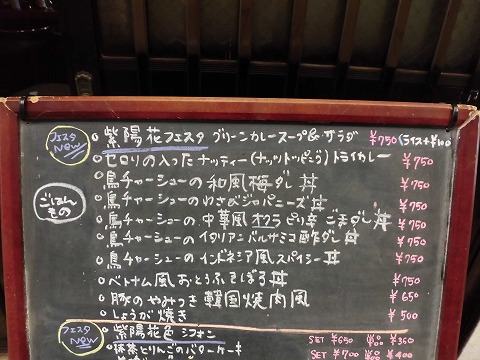 フェスタ NEW 紫陽花フェスタ グリーンカレースープ&サラダ ¥750 (ライス+¥100)
セロリの入ったナッティー(ナッツトッピング)ドライカレー ¥750
ごはんもの
鳥チャーシューの和風梅ダレ丼 ¥750
鳥チャーシューのわさびジャパニーズ丼 ¥750
鳥チャーシューの中華風オクラピリ辛ごまダレ丼 ¥750
鳥チャーシューのイタリアンバルサミコ酢ダレ丼 ¥750
鳥チャーシューのインドネシア風スパイシー丼 ¥750
ベトナム風おとうふそぼろ丼 ¥750
豚のやみつき韓国焼肉風 ¥650
しょうが焼き ¥500
フェスタ NEW 紫陽花色シフォン SET ¥650 ¥350
抹茶とりんごのバターケーキ SET ¥700 ¥400